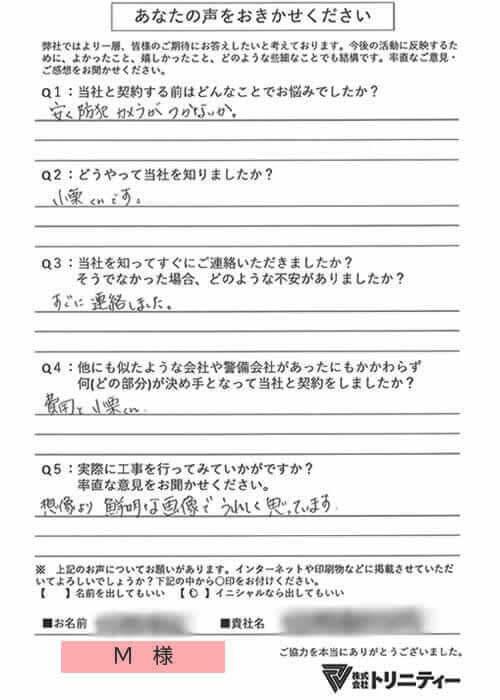 あなたの声をおきかせください
弊社ではより一層、皆様のご期待にお答えしたいと考えております。今後の活動に反映するた
めに、よかったこと、嬉しかったこと、どのような些細なことでも結構です。率直なご意見・
ご感想をお聞かせください。
Q1：当社と契約する前はどんなことでお悩みでしたか？
安く防犯カメラがつかないか。
Q2：どうやって当社を知りましたか？
小栗くんです。
Q3：当社を知ってすぐにご連絡いただきましたか？
そうでなかった場合、どのような不安がありましたか？
すぐに連絡しました。
Q4：他にも似たような会社や警備会社があったにもかかわらず
何(どの部分)が決め手となって当社と契約をしましたか？
費用と小栗くん
Q5：実際に工事を行ってみていかがですか？
率直な意見をお聞かせください。
想像より鮮明な画像でうれしく思っています。
※ 上記のお声についてお願いがあります。インターネットや印刷物などに掲載させていただ
いてよろしいでしょうか？下記の中から〇印をお付けください。
【　】名前を出してもいい 【〇】イニシャルなら出してもいい
■お名前 ■貴社名
M 様
ご協力を本当にありがとうございました。
株式会社トリニティー